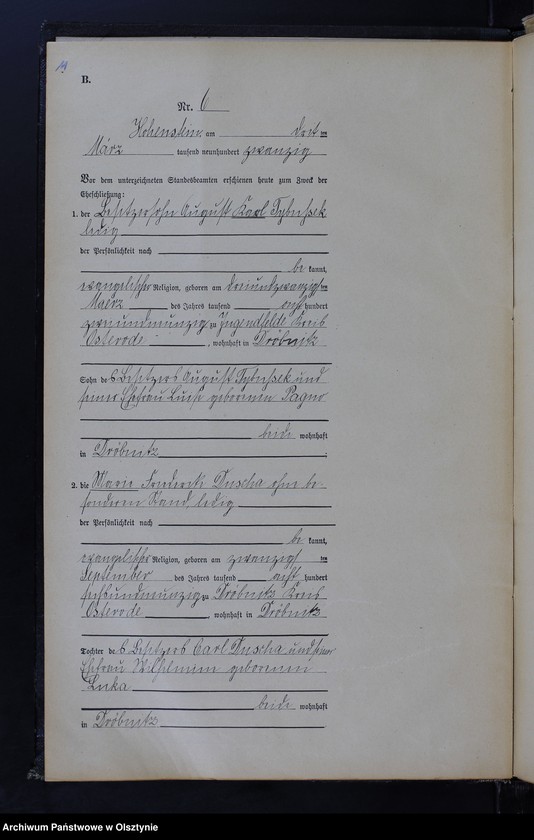 19
B.
Nr. 6
Hohenstein, am drit ten
März tausend neunhundert zwanzig
Vor dem unterzeichneten Standesbeamten erschienen heute zum Zweck der
Eheschließung:
1. der Besitzersohn August Karl Tybussek
ledig
der Persönlichkeit nach
be kannt,
evangelischer Religion, geboren am dreiundzwanzigs ten
März des Jahres tausend acht hundert
zweiundneunzig zu Jugendfelde Kreis
Osterode, wohnhaft in Dröbnitz
Sohn des Besitzers August Tybussek und
seiner Ehefrau Luise geborenen
beide wohnhaft
in Dröbnitz.
2. die Marie Frederike Duscha ohne be-
sonderen Stand, ledig
der Persönlichkeit nach
be kannt,
evangelischer Religion, geboren am zwanzigs ten
September des Jahres tausend acht hundert
sechsundneunzig zu Dröbnitz Kreis
Osterode, wohnhaft in Dröbnitz
Tochter des Besitzers Carl Duscha und seiner
Ehefrau Wilhelmine geborenen
beide wohnhaft
in Dröbnitz
Archiwum Państwowe w Olsztynie